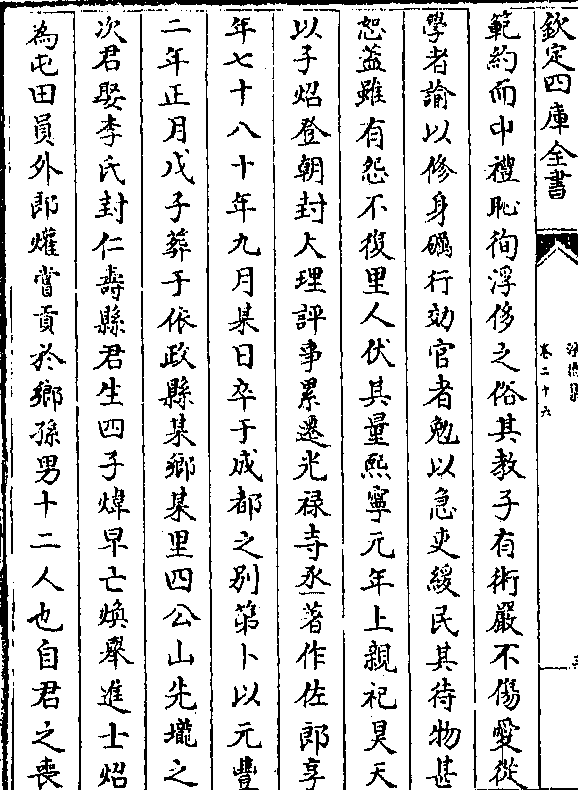 欽定四庫全書
卷二十六
範約而中禮恥徇浮侈之俗其教子有術嚴不傷愛從
學者諭以修身礪行効官者勉以急吏緩民其待物甚
恕葢雖有怨不復里人伏其量熙寧元年上親祀昊天
以子炤登朝封大理評事累遷光禄寺丞著作佐郎享
年七十八十年九月某日卒于成都之別第卜以元豐
二年正月戊子葬于依政縣某鄉某里四公山先壠之
次君娶李氏封仁壽縣君生四子煒早亡煥舉進士炤
為屯田員外郎爟嘗貢於鄉孫男十二人也自君之喪